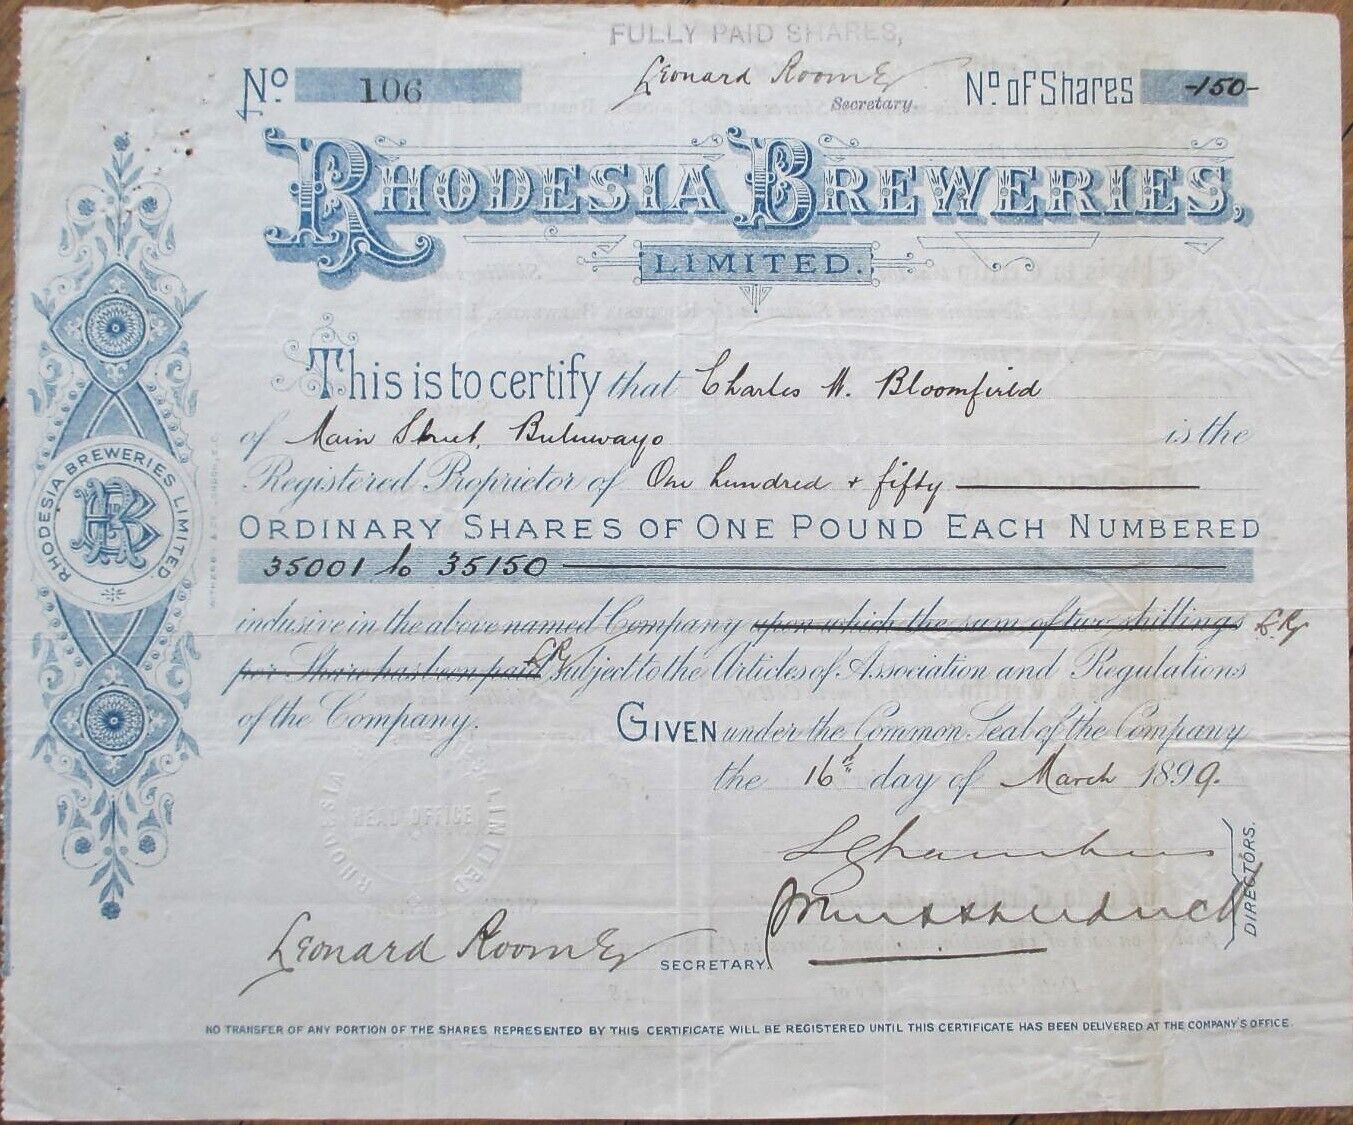 FULLY PAID SHARES,
Leonard Roomey
Secretary.
No 106
No. of Shares -150-
RHODESIA BREWERIES,
LIMITED.
This is to certify that Charles M. Bloomfield
of Main Street, Buluwayo is the
Registered Proprietor of One hundred & fifty
ORDINARY SHARES OF ONE POUND EACH NUMBERED
35001 to 35150
inclusive in the above named Company upon which the sum of two shillings L.R.
per Share has been paid L.R. Subject to the Articles of Association and Regulations
of the Company.
GIVEN under the Common Seal of the Company
the 16th day of March 1899.
DIRECTORS.
Leonard Roomey SECRETARY.
NO TRANSFER OF ANY PORTION OF THE SHARES REPRESENTED BY THIS CERTIFICATE WILL BE REGISTERED UNTIL THIS CERTIFICATE HAS BEEN DELIVERED AT THE COMPANY'S OFFICE.
RHODESIA BREWERIES LIMITED.
RHODESIA LIMITED
HEAD OFFICE